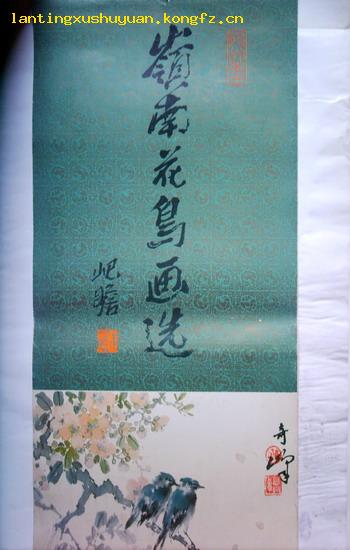 lantingxushuyuan.kongfz.cn
嶺南花鳥画选
屺瞻
奇峰